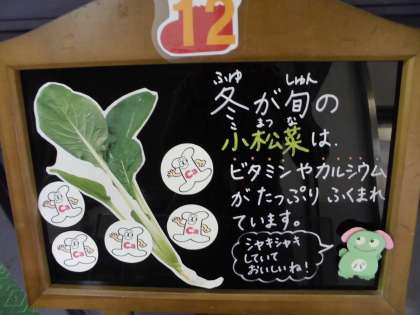 12
ふゆ しゅん
冬が旬の
こ まつ な
小松菜は、
ビタミンやカルシウム
がたっぷりふくまれ
ています。
シャキシャキ
していて
おいしいね!
Ca
Ca
Ca
Ca
Ca